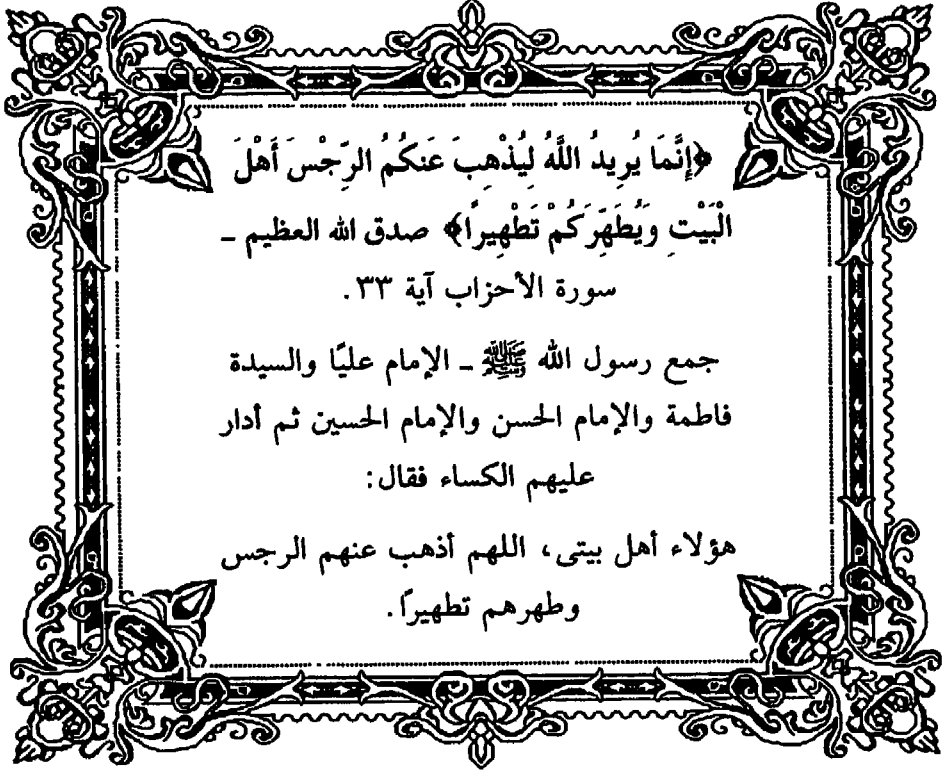 ﴿إِنَّمَا يُرِيدُ اللَّهُ لِيُذْهِبَ عَنكُمُ الرِّجْسَ أَهْلَ
الْبَيْتِ وَيُطَهِّرَكُمْ تَطْهِيرًا﴾ صدق الله العظيم ـ
سورة الأحزاب آية ٣٣.
جمع رسول الله ﷺ ـ الإمام عليًا والسيدة
فاطمة والإمام الحسن والإمام الحسين ثم أدار
عليهم الكساء فقال:
هؤلاء أهل بيتى، اللهم أذهب عنهم الرجس
وطهرهم تطهيرًا.